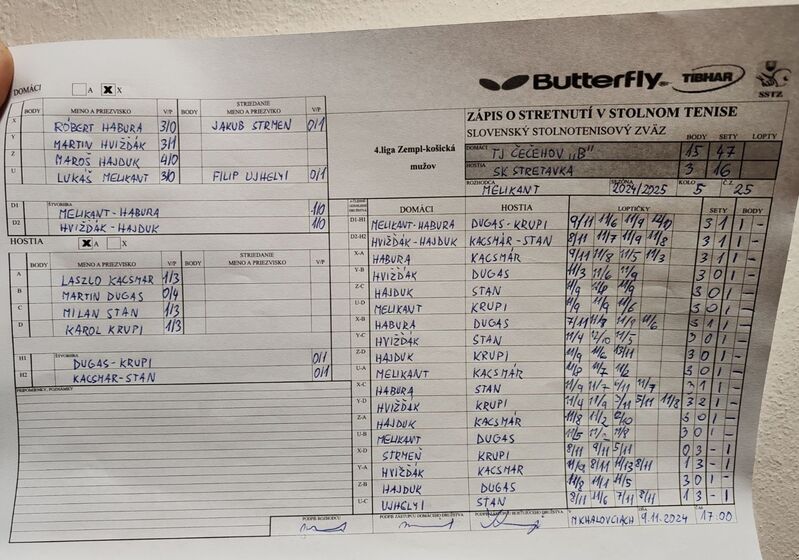 Butterfly TIBHAR SSTZ
DOMÁCI A X X
BODY MENO A PRIEZVISKO V/P BODY STRIEDANIE MENO A PRIEZVIKO V/P
X RÓBERT HABURA 3/0 JAKUB STRMEŇ 0/1
Y MARTIN HVIŽĎÁK 3/1
Z MAROŠ HAJDUK 4/0
U LUKÁŠ MELIKANT 3/0 FILIP UJHELYI 0/1
ŠTVORHRA
D1 MELIKANT-HABURA 1/0
D2 HVIŽĎÁK-HAJDUK 1/0
HOSTIA X A X
BODY MENO A PRIEZVISKO V/P BODY STRIEDANIE MENO A PRIEZVISKO V/P
A LASZLO KACSMÁR 1/3
B MARTIN DUGAS 0/4
C MILAN STAN 1/3
D KAROL KRUPI 1/3
ŠTVORHRA
H1 DUGAS-KRUPI 0/1
H2 KACSMÁR-STAN 0/1
PRIPOMIENKY, POZNÁMKY
4.liga Zempl-košická mužov
ZÁPIS O STRETNUTÍ V STOLNOM TENISE
SLOVENSKÝ STOLNOTENISOVÝ ZVÄZ BODY SETY LOPTY
DOMÁCI TJ ČEČEHOV „B" 15 47
HOSTIA SK STRETAVKA 3 16
ROZHODCA MELIKANT SEZÓNA 2024/2025 KOLO 5 Č.Z. 25
DOMÁCI HOSTIA LOPTIČKY SETY BODY
D1-H1 MELIKANT-HABURA DUGAS-KRUPI 9/11 11/6 11/9 12/10 3 1 1 -
D2-H2 HVIŽĎÁK-HAJDUK KACSMÁR-STAN 8/11 11/7 11/9 11/8 3 1 1 -
X-A HABURA KACSMÁR 9/11 11/8 11/5 11/3 3 1 1 -
Y-B HVIŽĎÁK DUGAS 11/3 11/6 11/9 3 0 1 -
Z-C HAJDUK STAN 3 0 1 -
U-D MELIKANT KRUPI 11/9 11/9 11/6 3 0 1 -
X-B HABURA DUGAS 7/11 11/9 11/6 3 1 1 -
Y-C HVIŽĎÁK STAN 11/4 12/10 11/5 3 0 1 -
Z-D HAJDUK KRUPI 11/9 11/6 13/11 3 0 1 -
U-A MELIKANT KACSMÁR 11/8 11/7 11/6 3 0 1 -
X-C HABURA STAN 11/9 11/7 11/7 3 1 1 -
Y-D HVIŽĎÁK KRUPI 11/4 11/9 5/11 11/3 3 2 1 -
Z-A HAJDUK KACSMÁR 11/8 11/2 12/10 3 0 1 -
U-B MELIKANT DUGAS 11/5 11/2 11/8 3 0 1 -
X-D STRMEŇ KRUPI 8/11 9/11 5/11 0 3 - 1
Y-A HVIŽĎÁK KACSMÁR 11/9 8/11 11/13 8/11 1 3 - 1
Z-B HAJDUK DUGAS 11/8 11/1 11/5 3 0 1 -
U-C UJHELYI STAN 8/11 11/6 7/11 8/11 1 3 - 1
PODPIS ROZHODCU PODPIS ZÁSTUPCU DOMÁCEHO DRUŽSTVA V MICHALOVCIACH DŇA 9.11.2024 ČAS 17:00